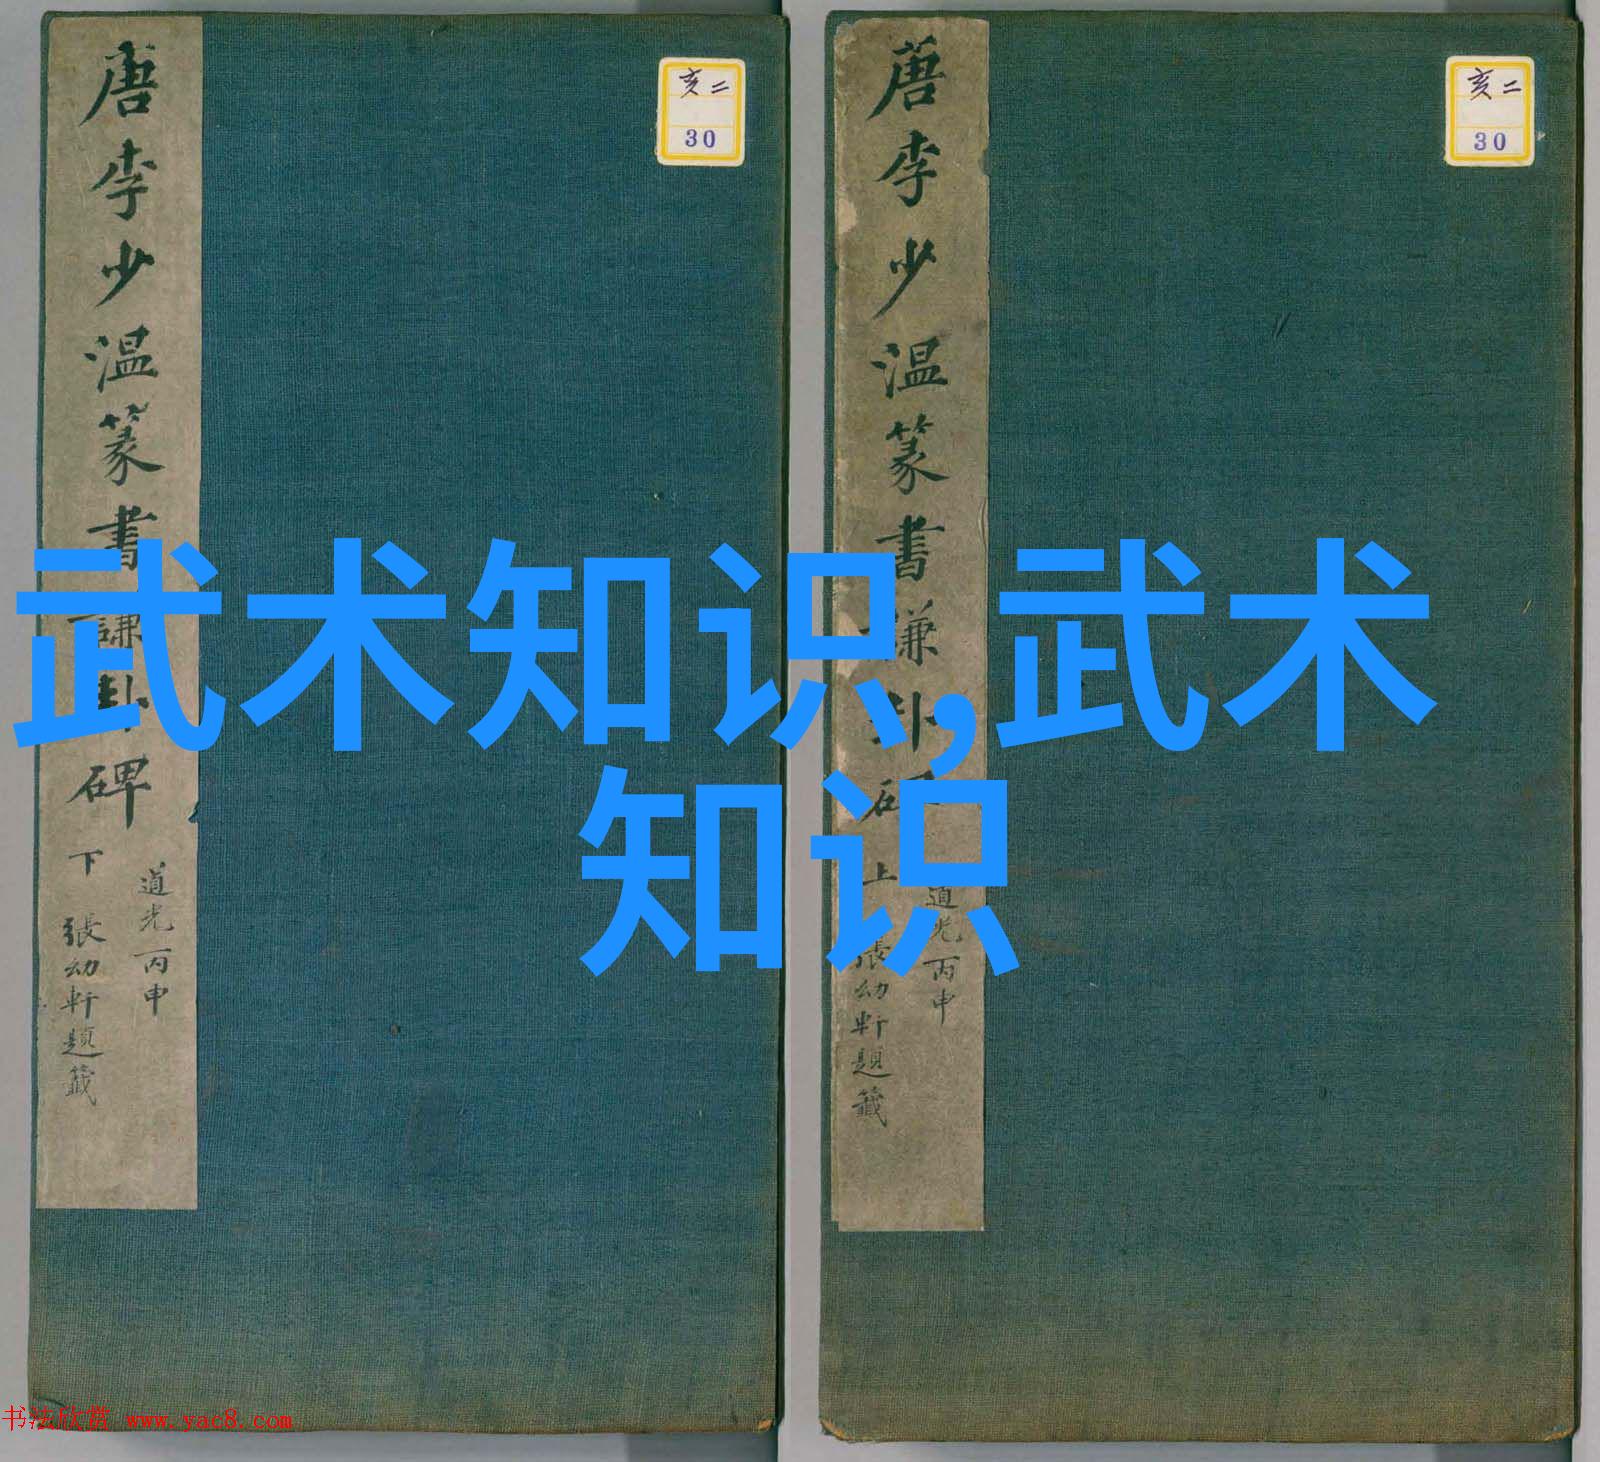 唐李少温篆書謙卦碑
下 張幼軒題籤
道光丙申
亥二
30
唐李少温篆書謙卦碑
上 張幼軒題籤
道光丙申
亥二
30
武术知识,武术
知识
书法欣赏 www.yac8.com